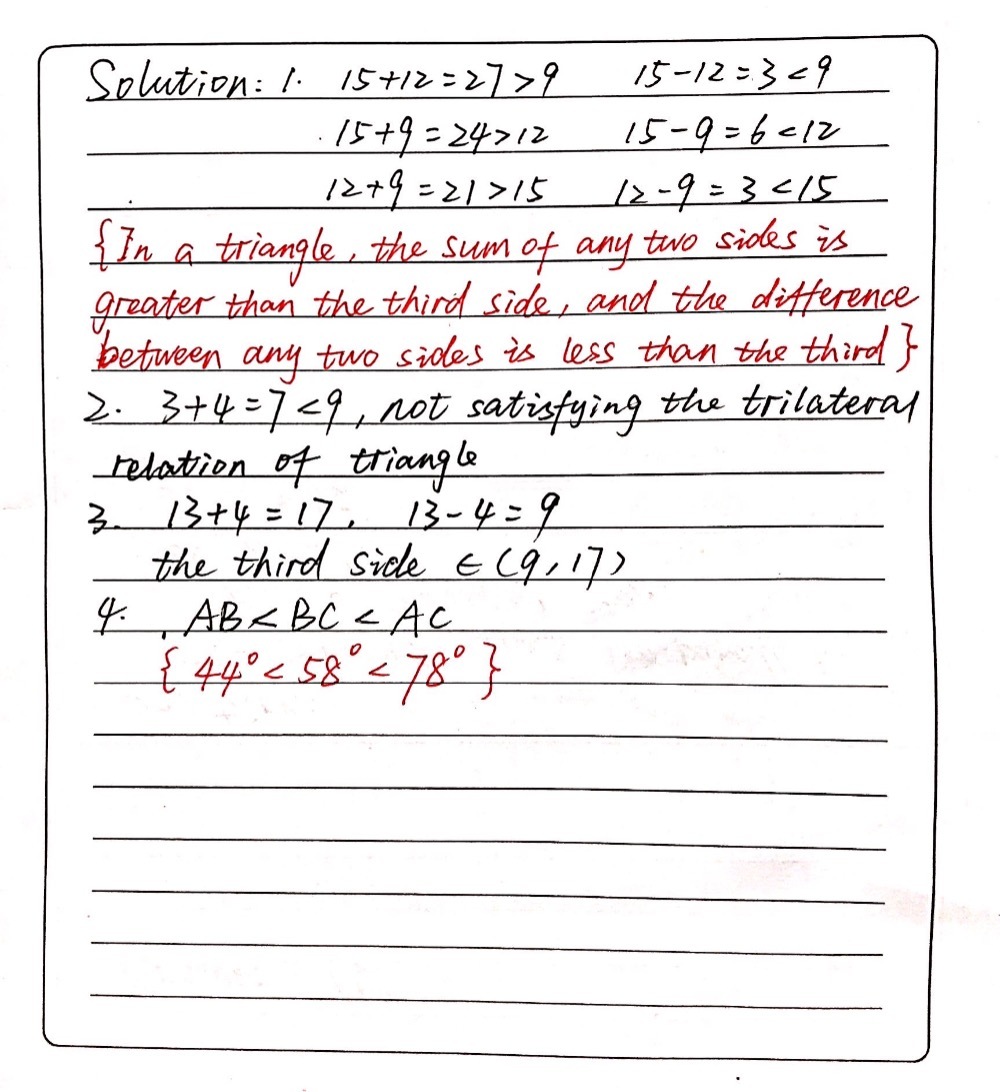 Solution: 1. 15+12=27>9 15-12=3<9
15+9=24>12 15-9=6<12
12+9=21>15 12-9=3<15
{In a triangle, the sum of any two sides is
greater than the third side, and the difference
between any two sides is less than the third}
2. 3+4=7<9, not satisfying the trilateral
relation of triangle
3. 13+4=17, 13-4=9
the third side ∈ (9,17)
4. AB<BC<AC
{44°<58°<78°}